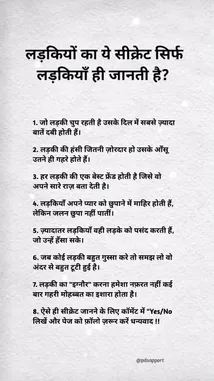 लड़कियों का ये सीक्रेट सिर्फ
लड़कियाँ ही जानती है?
1. जो लड़की चुप रहती है उसके दिल में सबसे ज़्यादा
बातें दबी होती हैं।
2. लड़की की हंसी जितनी ज़ोरदार हो उसके आँसू
उतने ही गहरे होते हैं।
3. हर लड़की की एक बेस्ट फ्रेंड होती है जिसे वो
अपने सारे राज़ बता देती है।
4. लड़कियाँ अपने प्यार को छुपाने में माहिर होती हैं,
लेकिन जलन छुपा नहीं पातीं।
5. ज़्यादातर लड़कियाँ वही लड़के को पसंद करती हैं,
जो उन्हें हँसा सके।
6. जब कोई लड़की बहुत गुस्सा करे तो समझ लो वो
अंदर से बहुत टूटी हुई है।
7. लड़की का "इग्नोर" करना हमेशा नफ़रत नहीं कई
बार गहरी मोहब्बत का इशारा होता है।
8. ऐसे ही सीक्रेट जानने के लिए कॉमेंट में "Yes/No
लिखें और पेज को फ़ॉलो ज़रूर करें धन्यवाद !!